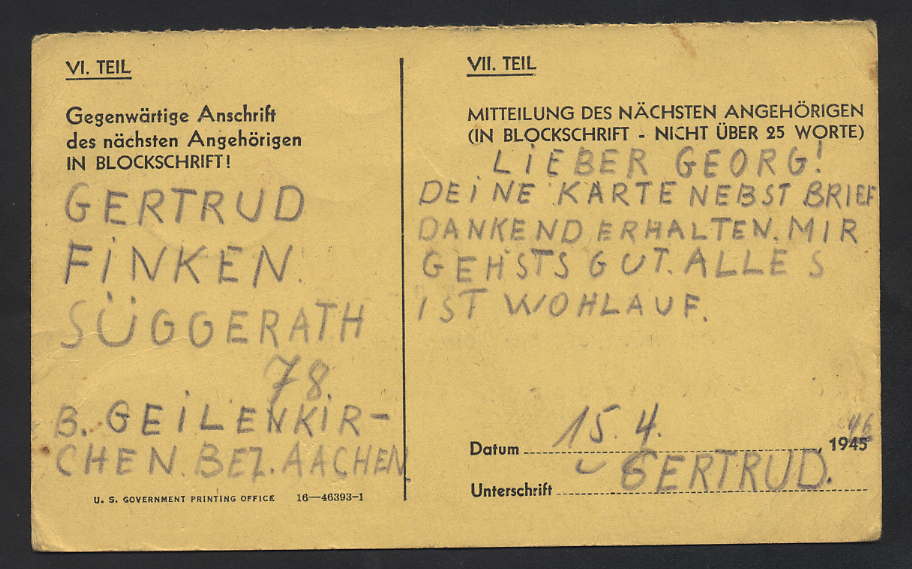 VI. TEIL
Gegenwärtige Anschrift
des nächsten Angehörigen
IN BLOCKSCHRIFT!
GERTRUD
FINKEN.
SÜGGERATH
78.
B. GEILENKIR-
CHEN. BEZ. AACHEN
U. S. GOVERNMENT PRINTING OFFICE 16—46393-1
VII. TEIL
MITTEILUNG DES NÄCHSTEN ANGEHÖRIGEN
(IN BLOCKSCHRIFT - NICHT ÜBER 25 WORTE)
LIEBER GEORG!
DEINE KARTE NEBST BRIEF
DANKEND ERHALTEN. MIR
GEHSTS GUT. ALLE S
IST WOHLAUF.
Datum 15. 4. 1945 46
Unterschrift GERTRUD.